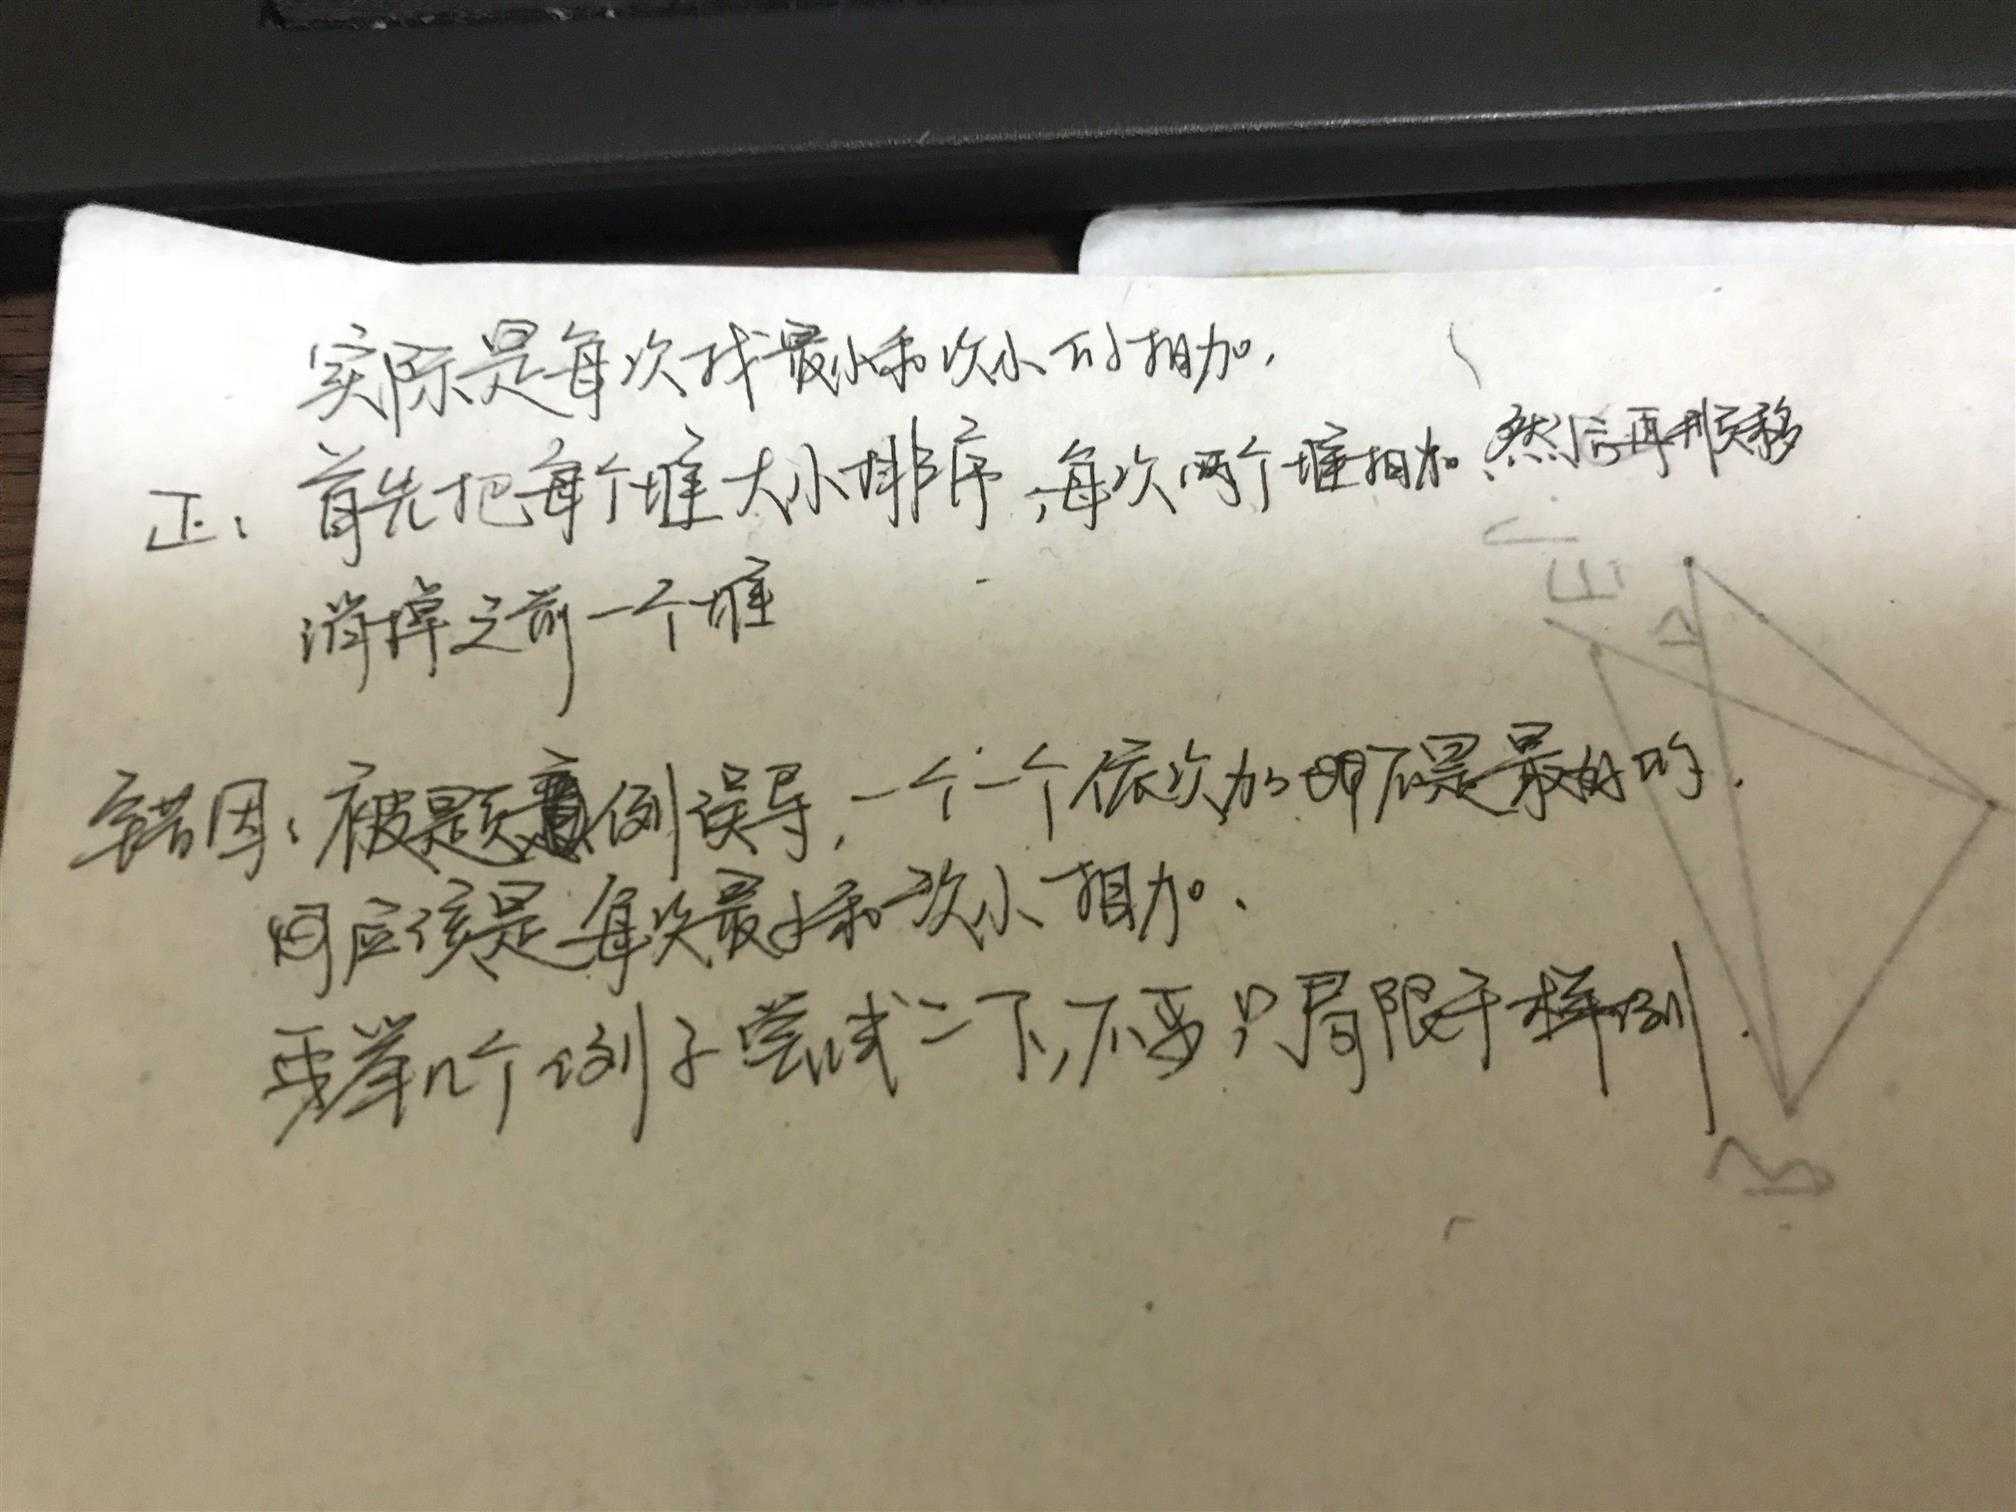 实际是每次找最小和次小的相加.
正: 首先把每个堆大小排序,每次两个堆相加.然后再顺移
消掉之前一个堆
错因:被题例误导,一个一个依次加 不是最好的.
应该是每次最小和次小相加.
要举几个例子尝试一下,不要只局限于样例.